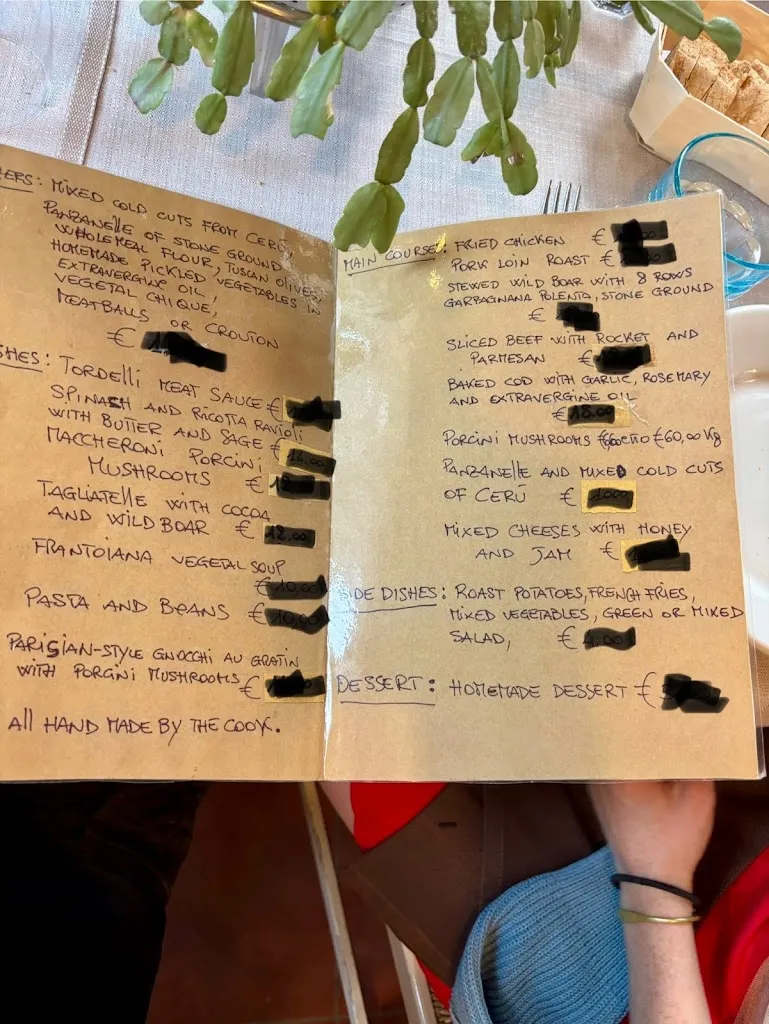 ERS: MIXED COLD CUTS FROM CERÙ
PANZANELLE OF STONE GROUND
WHOLEMEAL FLOUR, TUSCAN OLIVES
HOMEMADE PICKLED VEGETABLES IN
EXTRAVERGINE OIL,
VEGETAL CHIQUE,
MEATBALLS OR CROUTON
€
SHES: TORDELLI MEAT SAUCE €
SPINASH AND RICOTTA RAVIOLI
WITH BUTTER AND SAGE €
MACCHERONI PORCINI
MUSHROOMS €
TAGLIATELLE WITH COCOA
AND WILD BOAR € 12.00
FRANTOIANA VEGETAL SOUP
€ 10,00
PASTA AND BEANS € 10,00
PARISIAN-STYLE GNOCCHI AU GRATIN
WITH PORCINI MUSHROOMS €
All HAND MADE BY THE COOK.
MAIN COURSE: FRIED CHICKEN €
PORK LOIN ROAST €
STEWED WILD BOAR WITH 8 ROWS
GARFAGNANA POLENTA, STONE GROUND
€
SLICED BEEF WITH ROCKET AND
PARMESAN €
BAKED COD WITH GARLIC, ROSEMARY
AND EXTRAVERGINE OIL
€ 18.00
PORCINI MUSHROOMS €60,00 Kg
PANZANELLE AND MIXED COLD CUTS
OF CERÙ €
MIXED CHEESES WITH HONEY
AND JAM €
SIDE DISHES: ROAST POTATOES, FRENCH FRIES,
MIXED VEGETABLES, GREEN OR MIXED
SALAD, € 4.00
DESSERT: HOMEMADE DESSERT €